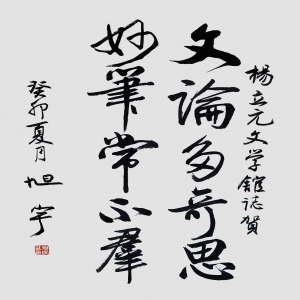 楊立元文学館誌賀
文論多奇思
妙筆常不羣
癸卯夏月旭宇